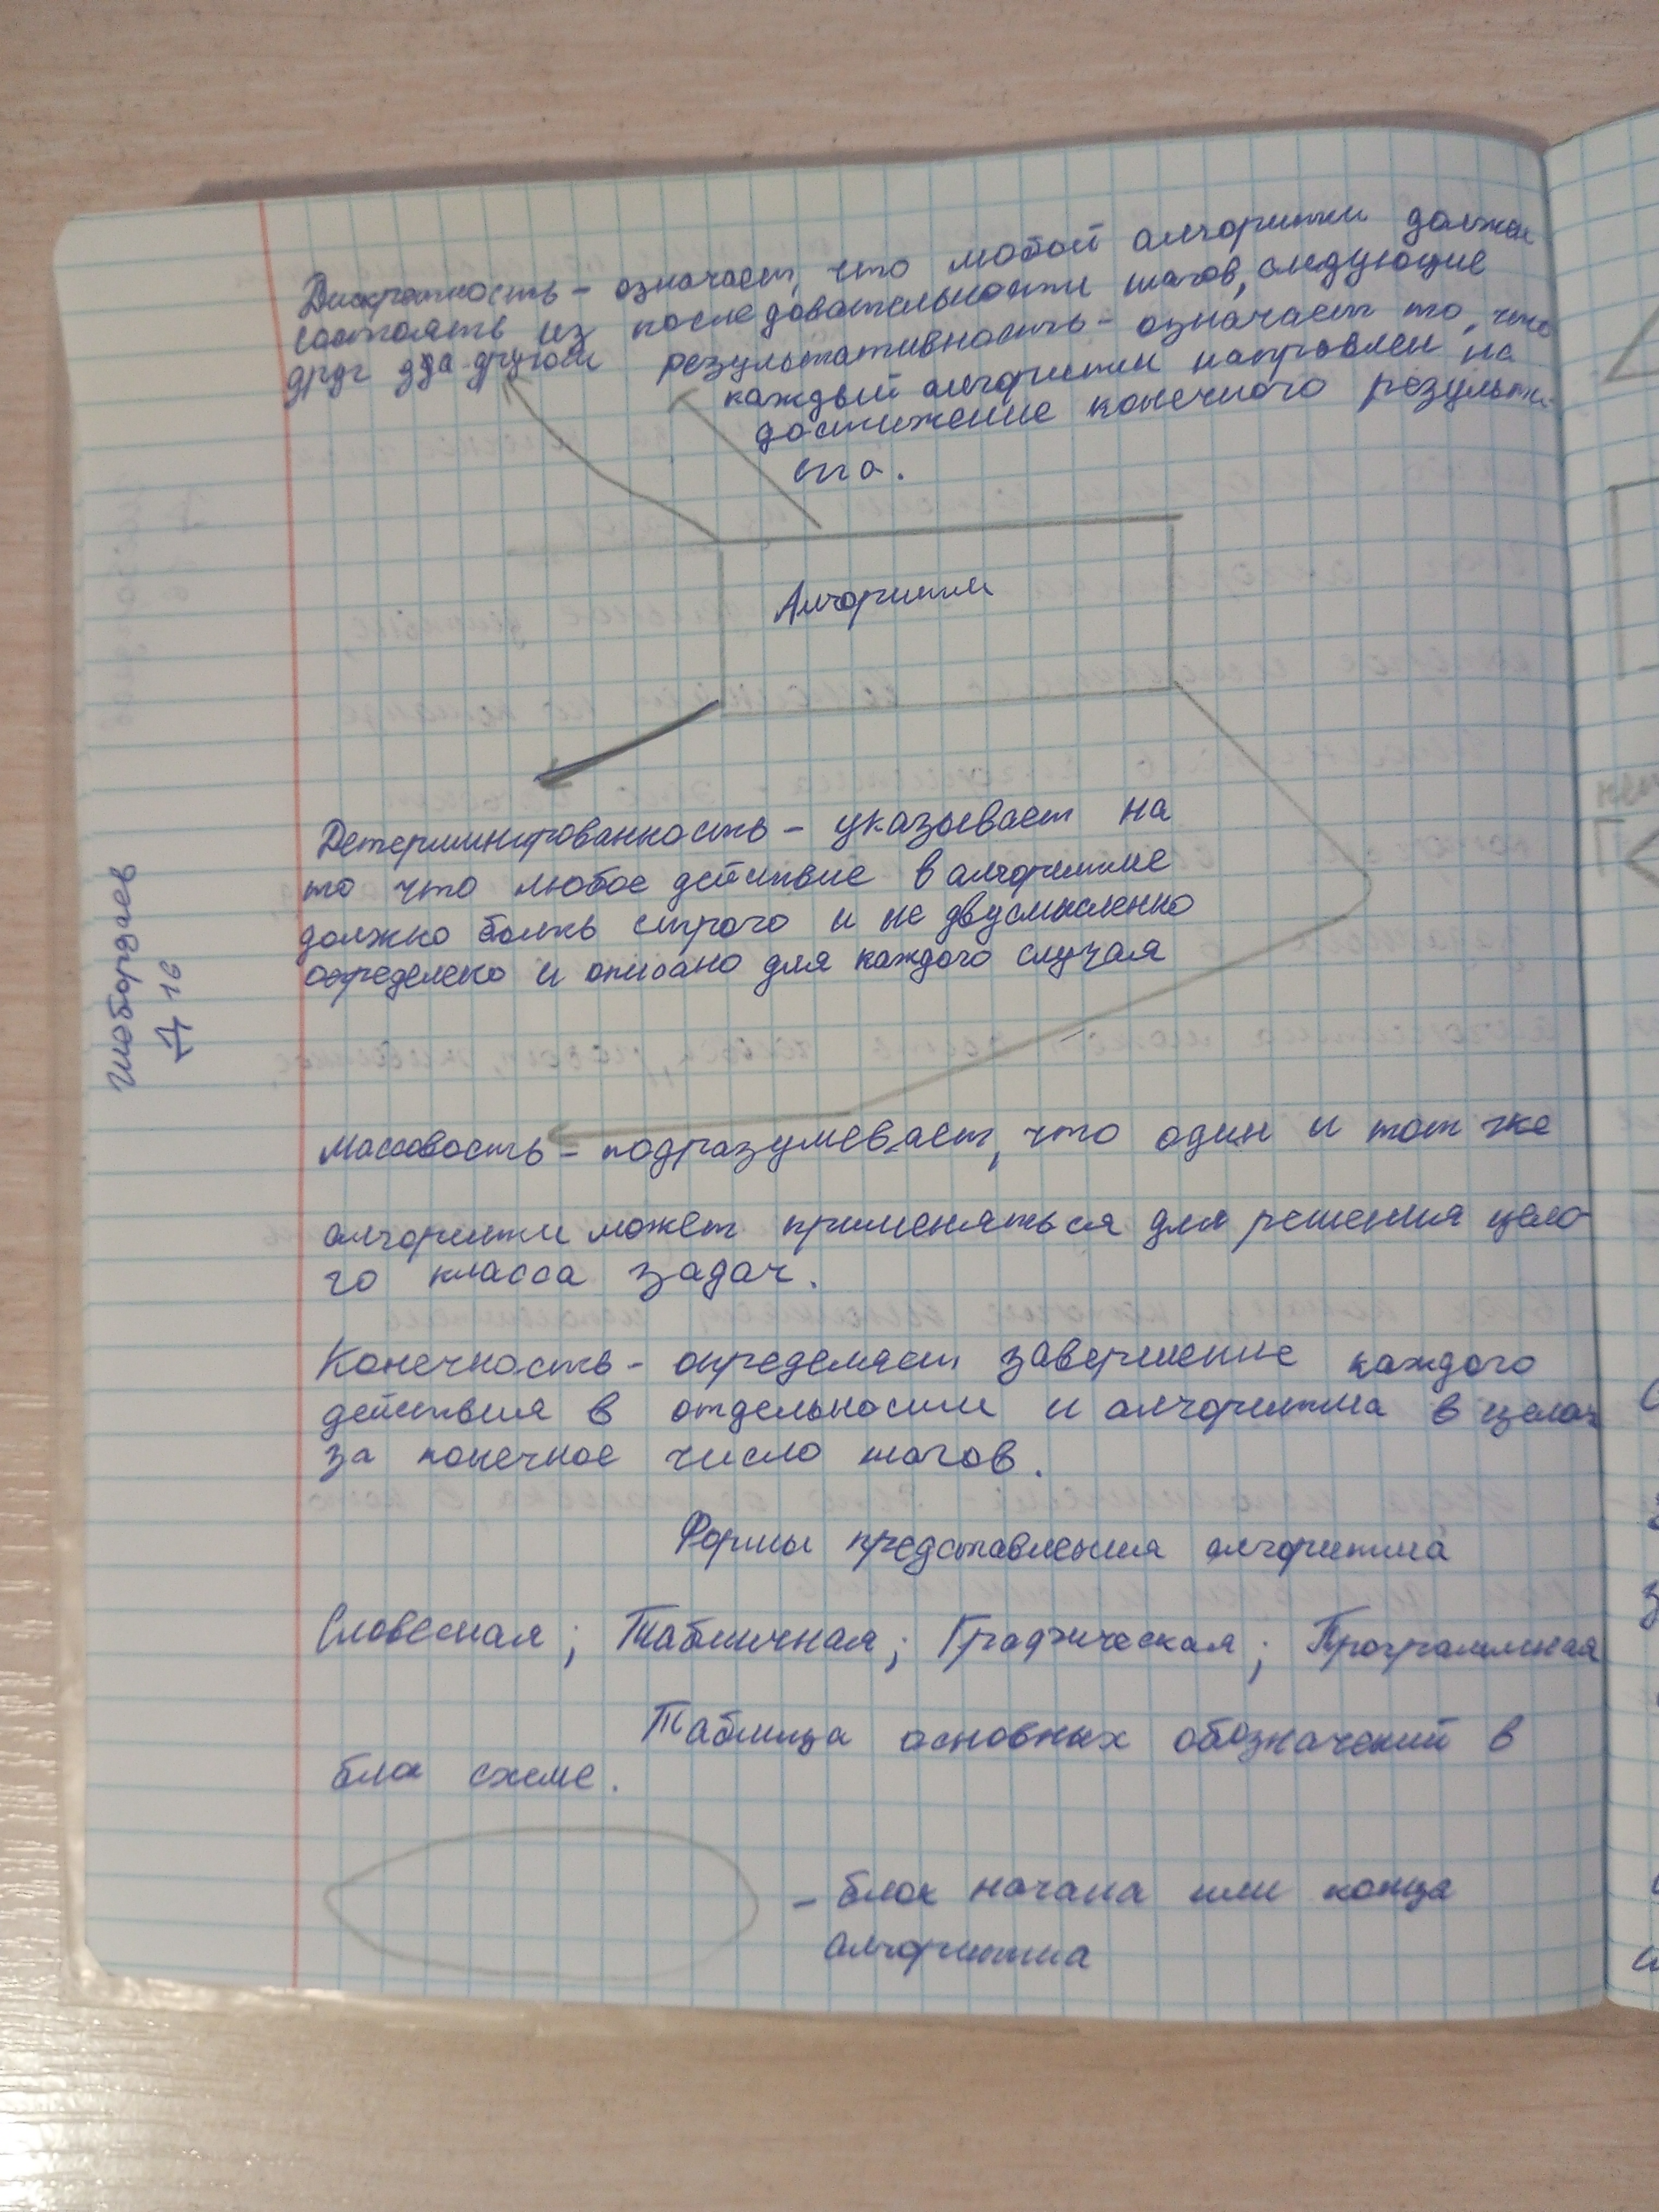 Дискретность - означает, что любой алгоритм должен
состоять из последовательности шагов, следующие
друг за другом
результативность - означает то, что
каждый алгоритм направлен на
достижение конечного результа-
ата.
Алгоритм
Детерминированность - указывает на
то что любое действие в алгоритме
должно быть строго и не двусмысленно
определено и описано для каждого случая
Массовость - подразумевает, что один и тот же
алгоритм может применяться для решения цело-
го класса задач.
Конечность - определяет завершение каждого
действия в отдельности и алгоритма в целом
за конечное число шагов.
Формы представления алгоритма
Словесная; Табличная; Графическая; Программная
Таблица основных обозначений в
блок схеме.
- блок начала или конца
алгоритма
Д 16